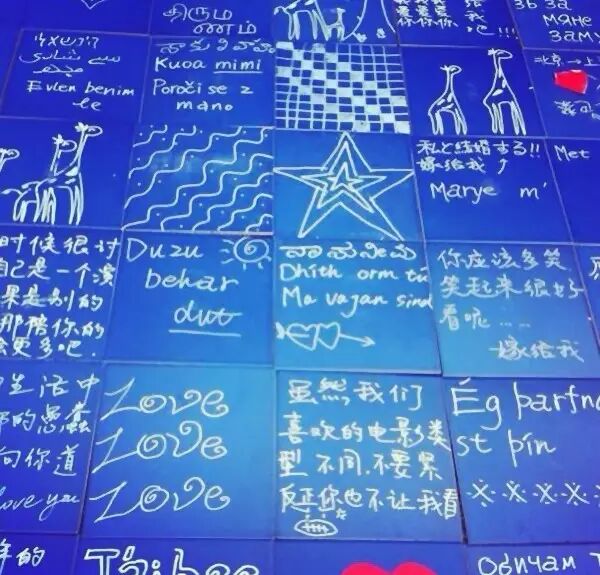 திரும
ணம்
给
我
吧!!!
зь за
мяне
заму
Evlen benim
le
Kuoa mimi
Poroči se z
mano
私と結婚する!!
嫁给我
Marye m'
Met
时候很讨
自己是一个演
果是别的
那陪你的
会更多吧.
Duzu
behar
dut
Dhith orm tú
Ma vagan sind
你应该多笑,
笑起来很好
看呢......
嫁给我
生活中
的愚蠢
向你道
love you
Love
Love
Love
虽然,我们
喜欢的电影类
型 不同.不要紧
反正你也不让我看
Ég þarfna
st þín
年的
Обичам т